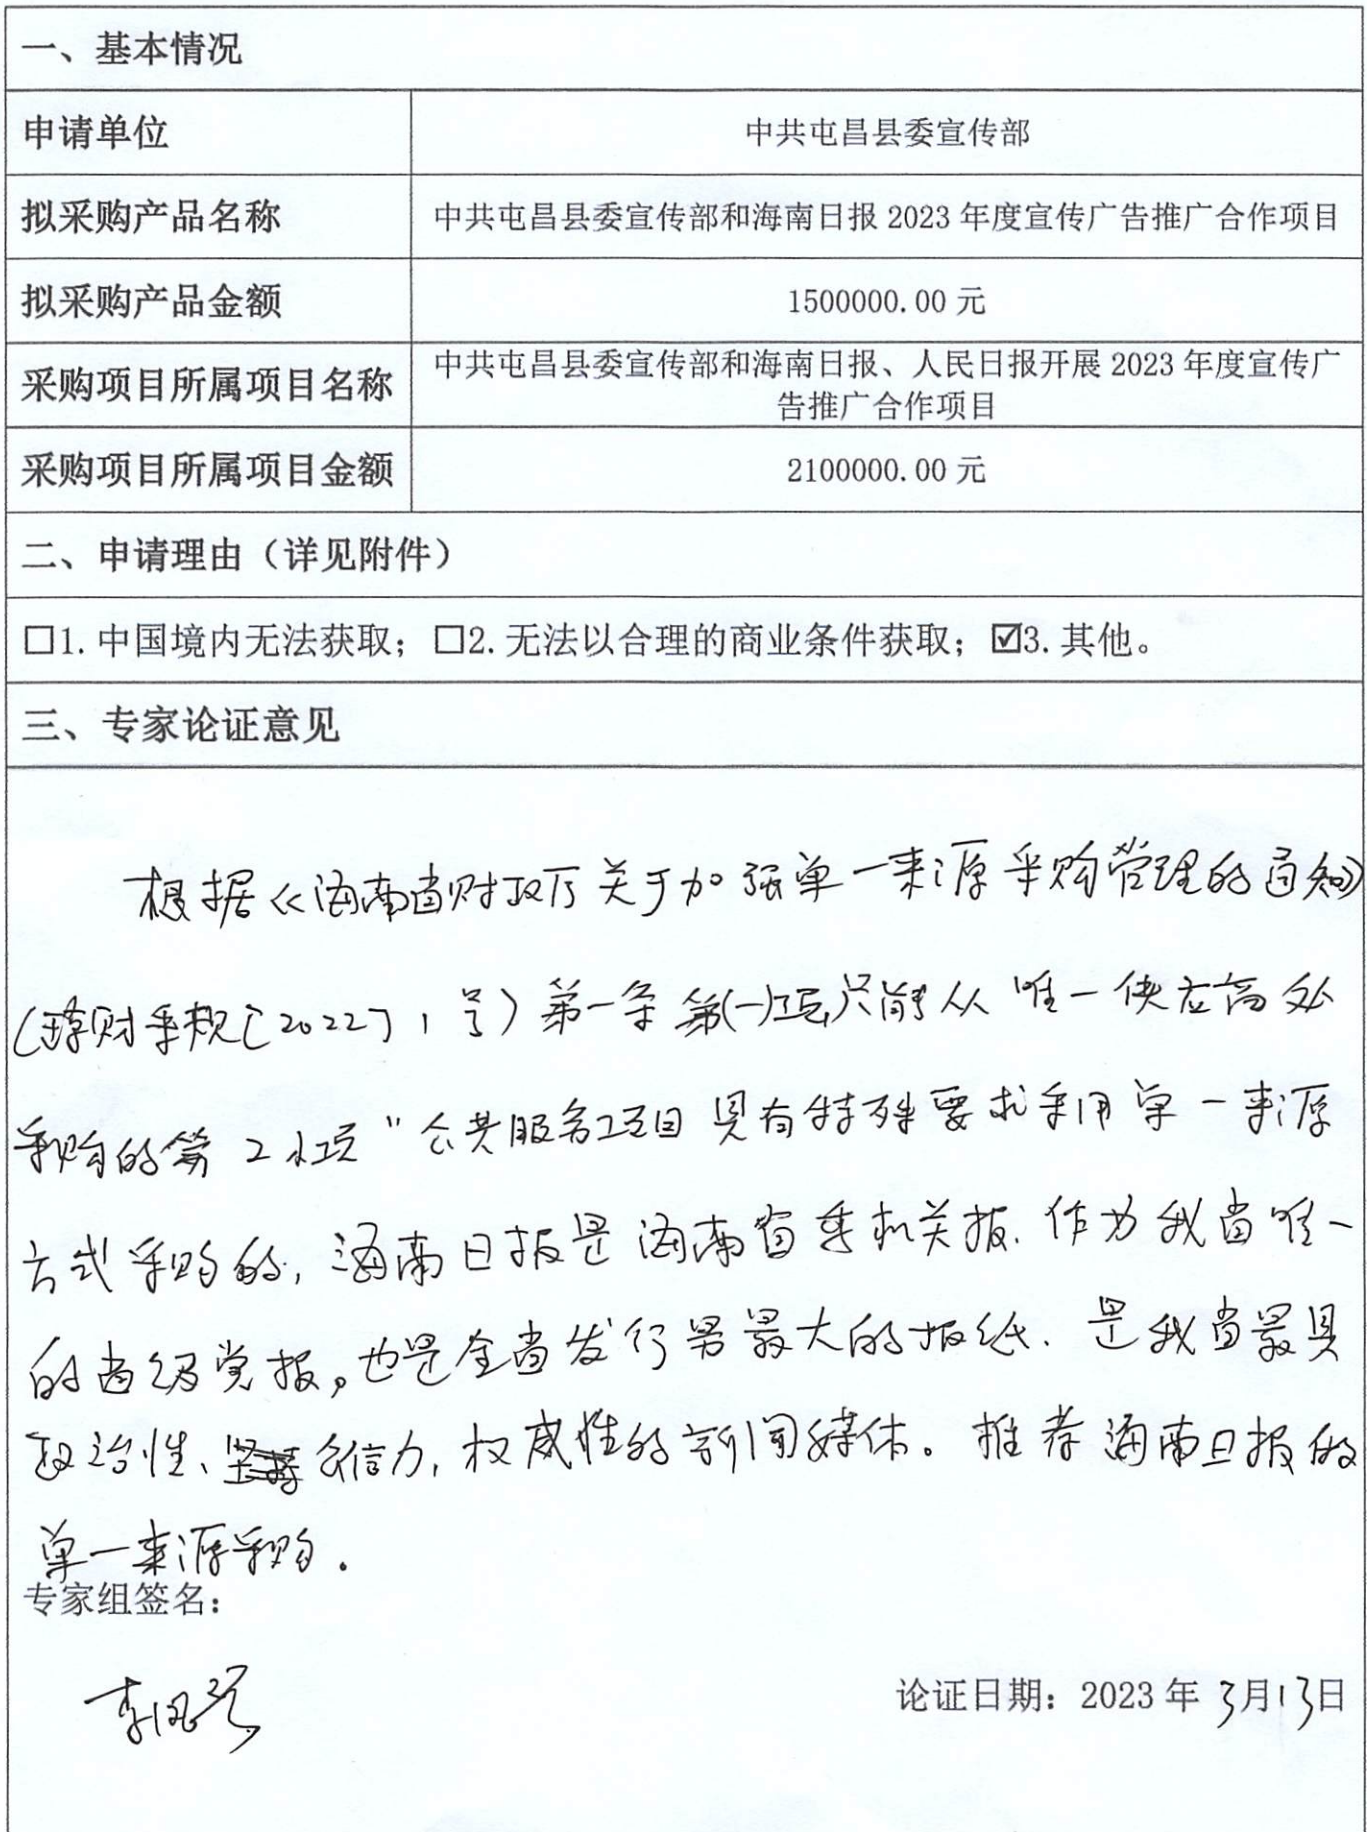 一、基本情况
申请单位
中共屯昌县委宣传部
拟采购产品名称
中共屯昌县委宣传部和海南日报 2023 年度宣传广告推广合作项目
拟采购产品金额
1500000.00 元
采购项目所属项目名称
中共屯昌县委宣传部和海南日报、人民日报开展 2023 年度宣传广
告推广合作项目
采购项目所属项目金额
2100000.00 元
二、申请理由（详见附件）
□1.中国境内无法获取；□2.无法以合理的商业条件获取；☑3.其他。
三、专家论证意见
根据《海南省财政厅关于加强单一来源采购管理的通知》
（琼财采规［2022］1号）第一条第(一)项,只能从唯一供应商处
采购的第2小项"公共服务项目具有特殊要求采用单一来源
方式采购的，海南日报是海南省委机关报、作为我省唯一
的省级党报，也是全省发行量最大的报纸、是我省最具
政治性、公信力，权威性的新闻媒体。推荐海南日报的
单一来源采购.
专家组签名：
论证日期：2023 年 3月13日